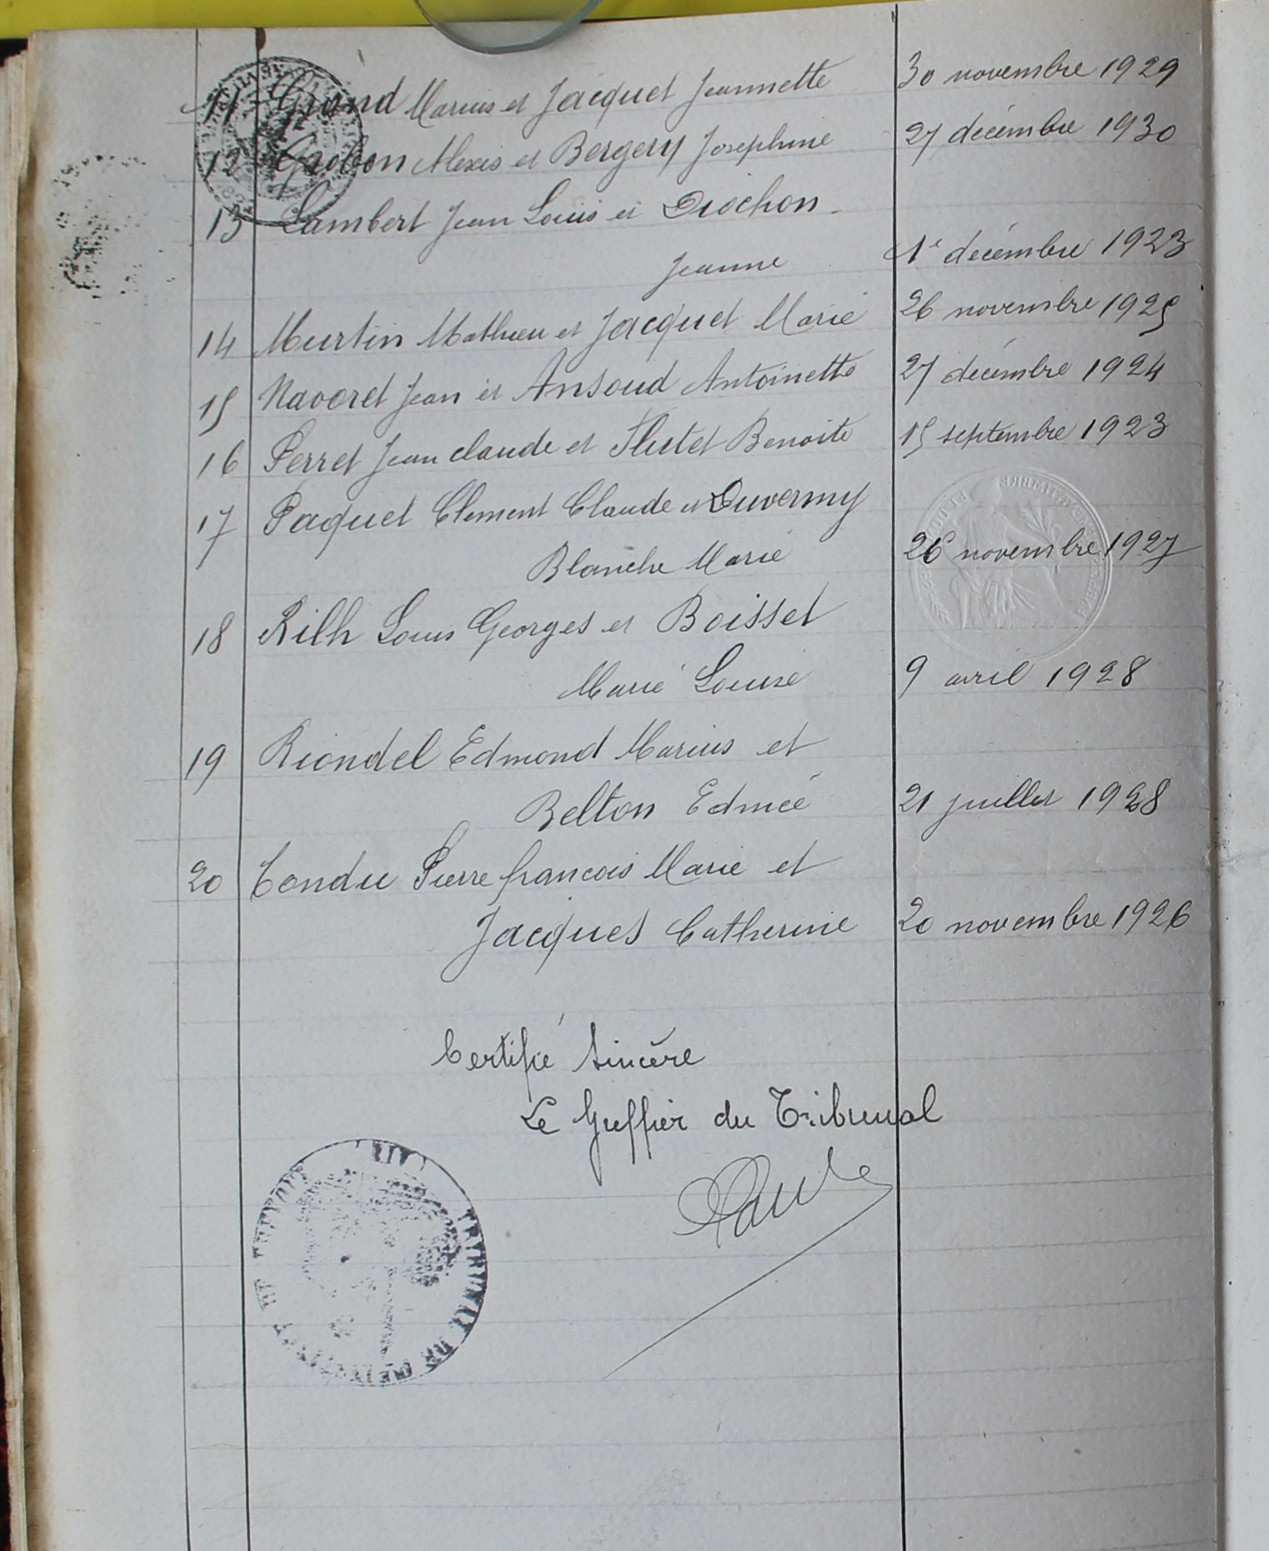 11 Grand Marius et Jacquet Jeannette 30 novembre 1929
12 Grobon Alexis et Bergery Joséphine 27 décembre 1930
13 Lambert Jean Louis et Diochon
Jeanne 1e décembre 1923
14 Murtin Mathieu et Jacquet Marie 26 novembre 1925
15 Navoret Jean et Ansoud Antoinette 27 décembre 1924
16 Perret Jean claude et Flutet Benoite 15 septembre 1923
17 Paquet Clement Claude et Duverny
Blanche Marie 26 novembre 1927
18 Rilh Louis Georges et Boisset
Marie Louise 9 avril 1928
19 Riondel Edmond Marius et
Belton Edmée 21 juillet 1928
20 Tondu Pierre françois Marie et
Jacques Catherine 20 novembre 1926
Certifié Sincère
Le Greffier du Tribunal
TRIBUNAL DE